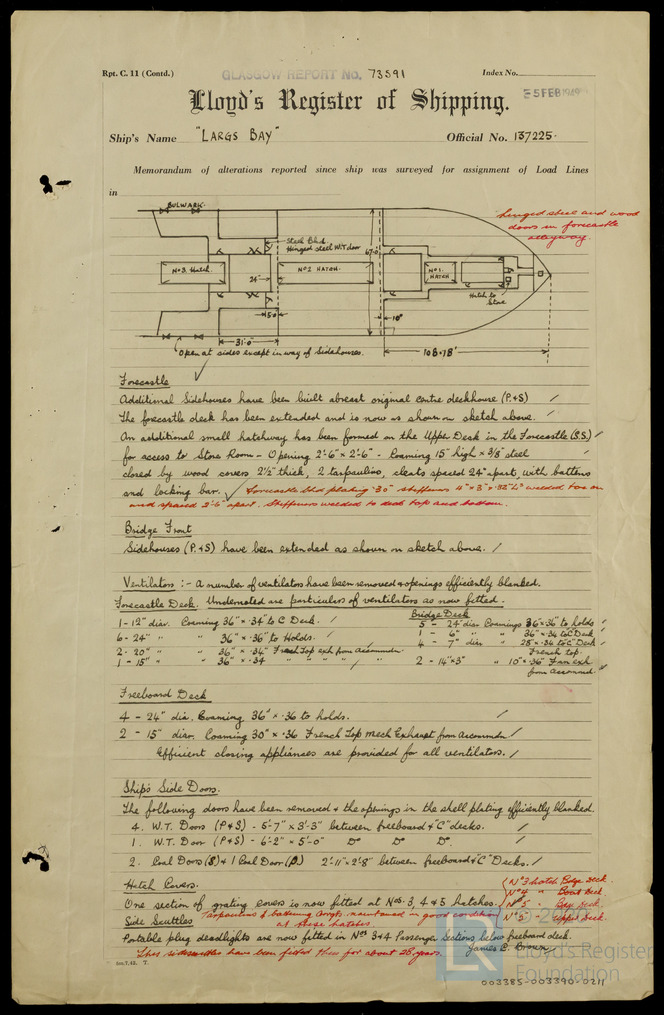 Rpt. C. 11 (Contd.)
GLASGOW REPORT No. 73591
Index No.
25 FEB 1949
Lloyd's Register of Shipping.
Ship's Name "LARGS BAY"
Official No. 137225.
Memorandum of alterations reported since ship was surveyed for assignment of Load Lines
in
BULWARK.
hinged steel and wood
doors in forecastle
alleyway.
Steel Blkd
Hinged steel W.T. door
67'-0"
No 3 Hatch.
24"
No 2 HATCH.
No 1.
HATCH
Hatch to
Store
5'0
10"
31'-0"
Open at sides except in way of Sidehouses.
108.78'
Forecastle
Additional Sidehouses have been built abreast original centre deckhouse (P.&S)
The forecastle deck has been extended and is now as shown on sketch above.
An additional small hatchway has been formed on the Upper Deck in the Forecastle (S.S.)
for access to Store Room - Opening 2'-6" x 2'-6" - Coaming 15" high x 3/8 steel
closed by wood covers 2½" thick, 2 tarpaulins, cleats spaced 24" apart with battens
and locking bar. Forecastle Bhd plating .30" stiffeners 4" x 3" x .32" Ls welded toe on
and spaced 2'-6" apart. Stiffeners welded to deck top and bottom.
Bridge Front
Sidehouses (P.&S) have been extended as shown on sketch above.
Ventilators :- A number of ventilators have been removed & openings efficiently blanked.
Forecastle Deck. Undernoted are particulars of ventilators as now fitted.
Bridge Deck
1 - 12" dia. Coaming 36" x .34 to C Deck.
5 - 24" dia Coamings 36" x .36 to holds
6 - 24" " " 36" x .36" to Holds.
1 - 6" " " 36" x .34 to C Deck
2 - 20" " " 36" x .34" French Top exh from Accommdn
4 - 7" dia " 25" x .34 to C Deck
French top.
1 - 15" " " 36" x .34 " " " " "
2 - 14" x 3" " 10" x .36" Fan exh
from Accommd.
Freeboard Deck
4 - 24" dia. Coaming 36" x .36 to holds.
2 - 15" dia. Coaming 30" x .36 French Top Mech Exhaust from Accommdn
Efficient closing appliances are provided for all ventilators.
Ship's Side Doors.
The following doors have been removed & the openings in the shell plating efficiently blanked.
4. W.T. Doors (P&S) - 5'-7" x 3'-3" between freeboard & "C" decks.
1. W.T. Door (P&S) - 6'-2" x 5'-0" Do Do Do.
2. Coal Doors (S) & 1 Coal Door (P.) 2'-11" x 2'-8" between freeboard & "C" Decks.
Hatch Covers.
No 3 hatch Bdge Deck.
No 4 " Boat Deck.
One section of grating covers is now fitted at Nos. 3, 4 & 5 hatches.
No 5 " Bdge Deck.
Side Scuttles Tarpaulins & battening arrgts. maintained in good condition
No 5 " Upper Deck.
at these hatches.
Portable plug deadlights are now fitted in Nos 3 & 4 Passenger Sections below freeboard deck.
This sidescuttles have been fitted thus for about 25 years.
James E. Brown
5m,7,48. T.
Lloyd's Register
Foundation
003385-003390-0211